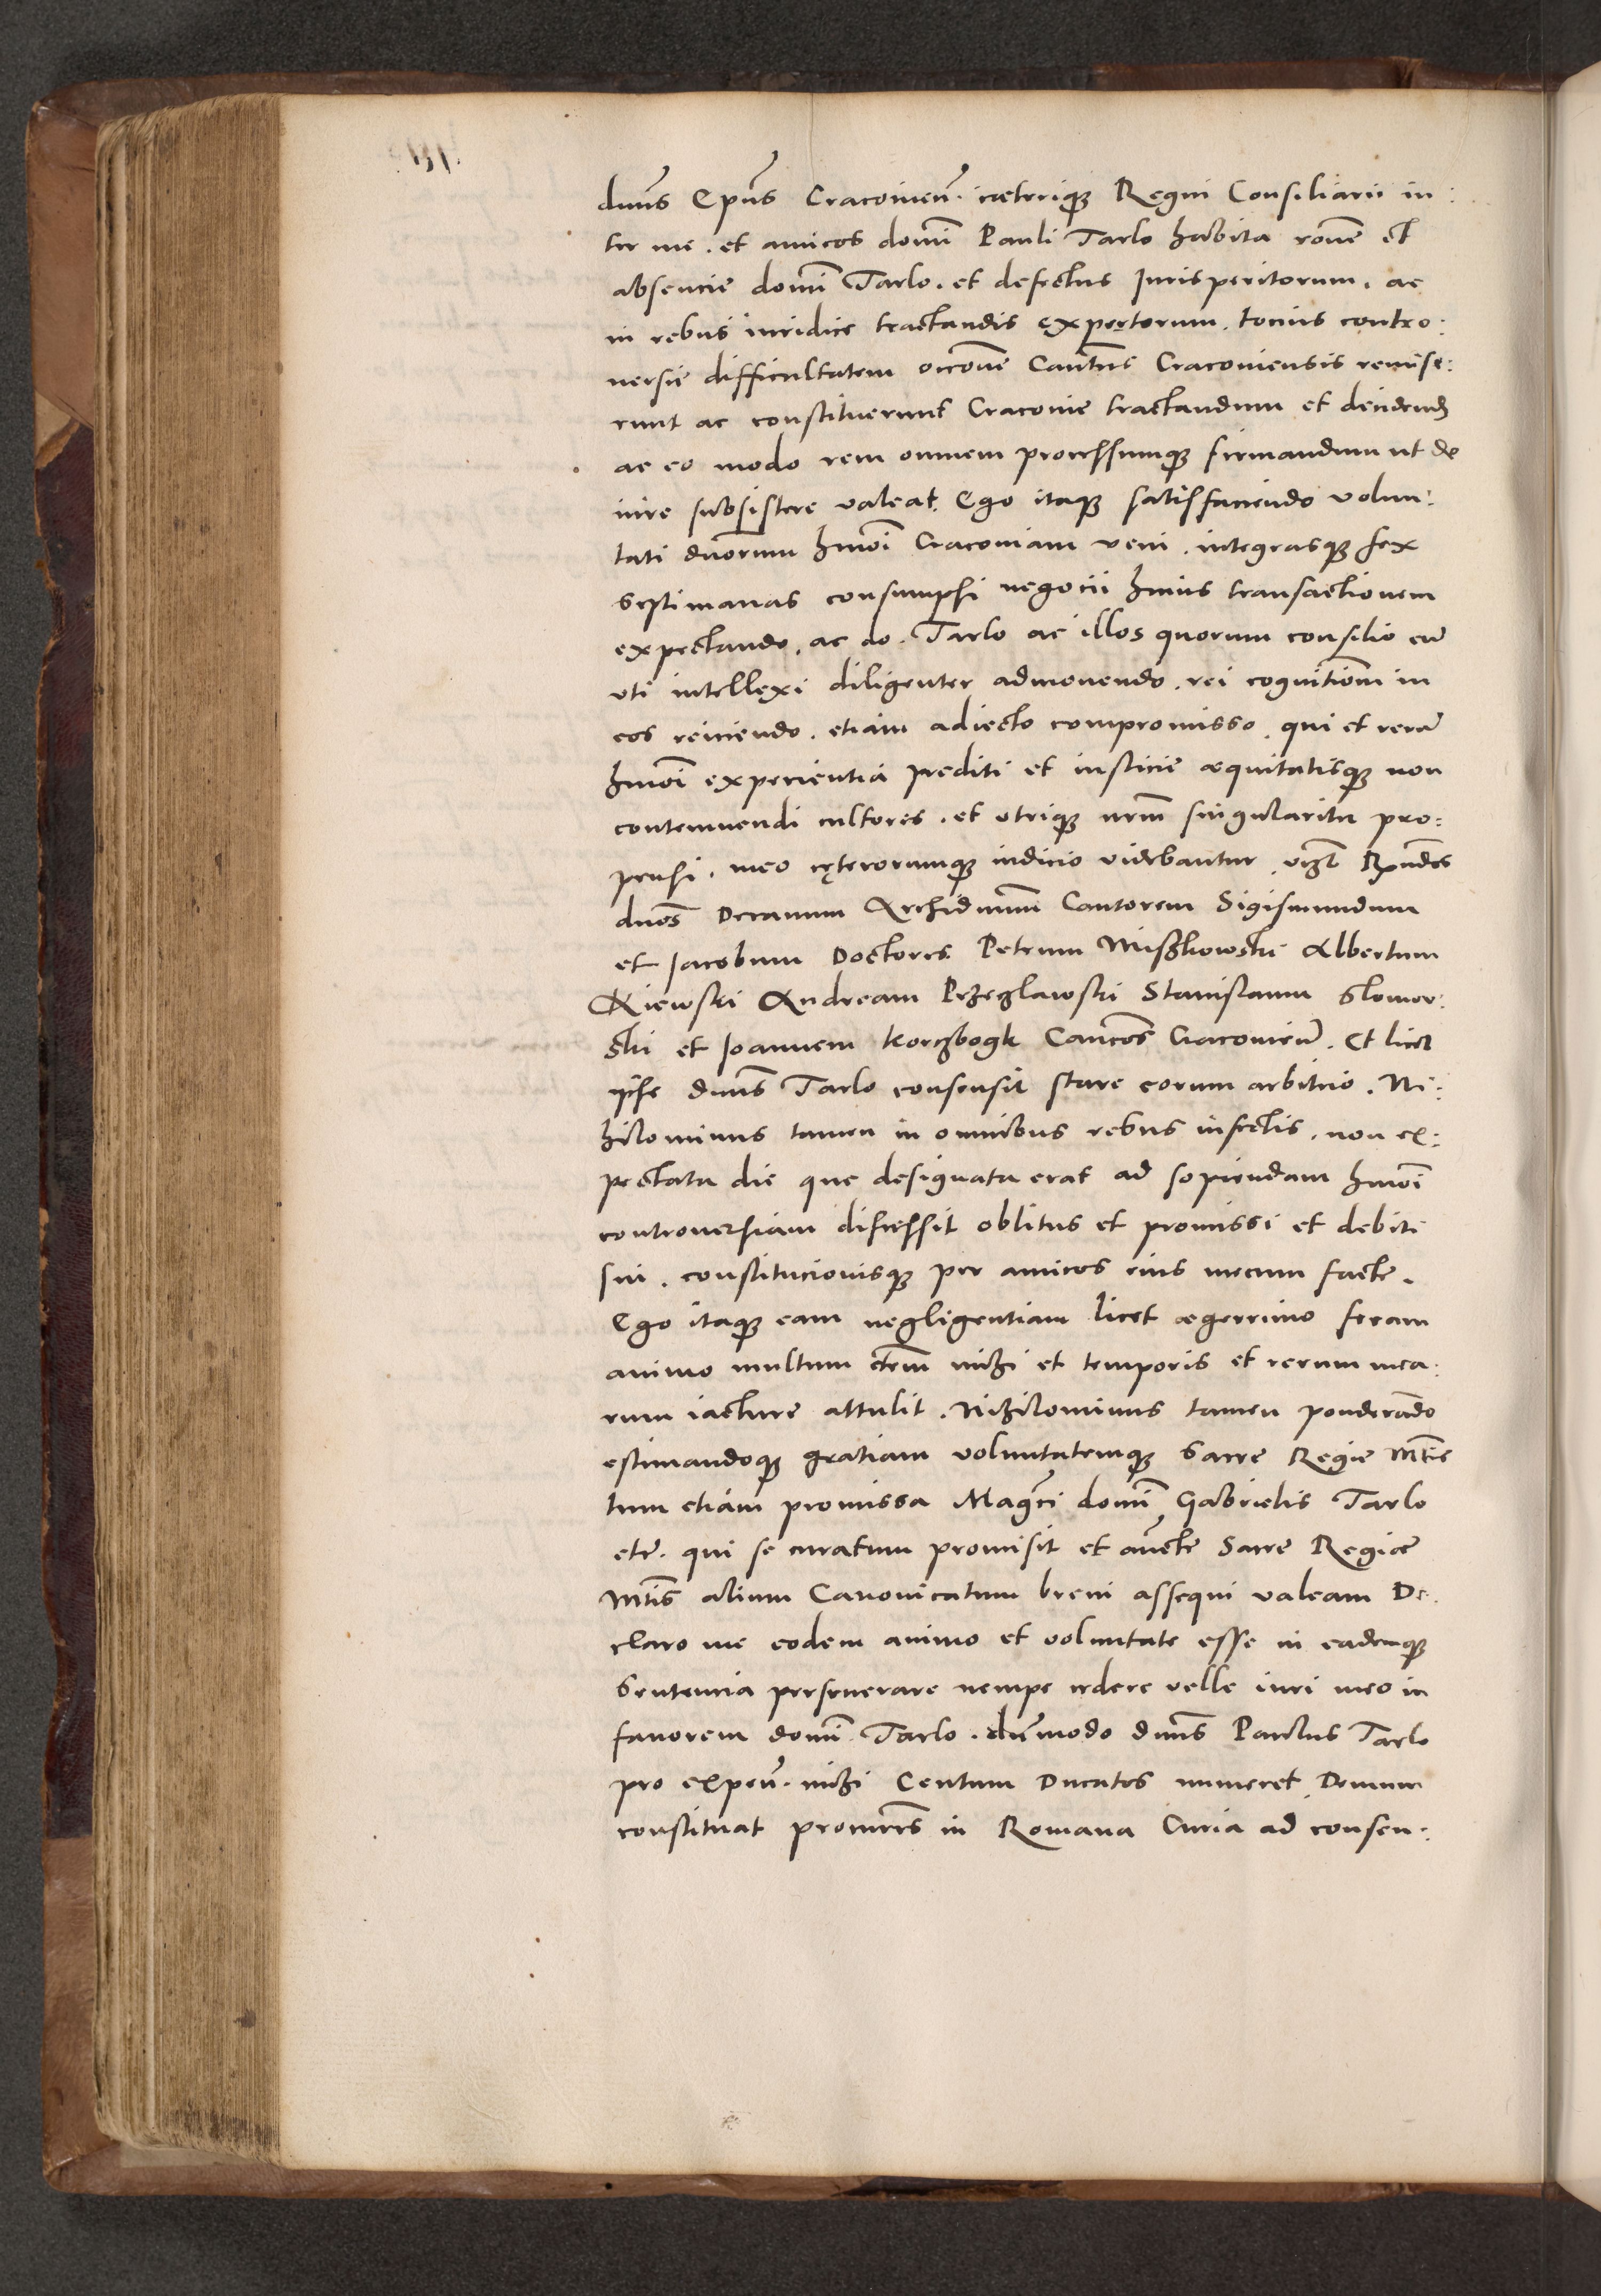 dnūs Epūs Cracovien̄. cæteriq3 Regni Consiliarii in:
ter me. et amicos domī Pauli Tarlo habita ro͞ne et
absencie domī Tarlo. et defectus Jurisperitorum. ac
in rebus iuridice tractandis expertorum. tocius contro:
versie difficultatem Cracoviensis remise:
runt ac constituerunt Cracovie tractandum et decidend3
ac eo modo rem omnem processumq3 firmandum ut de
iure subsistere valeat. Ego itaq3 satisfaciendo volun:
tati dn̄orum hmōi Cracoviam veni. integrasq3 sex
septimanas consumpsi negocii huius transactionem
expectando. ac do. Tarlo ac illos quorum consilio eū
uti intellexi diligenter admonendo. rei cognitionī in
eos reiiciendo. etiam adiecto compromisso. qui et rerū
hmōi experientia prediti et iusticie æquitatisq3 non
contemnendi cultores. et utriq3 nrm̄ singulariter pro:
pensi. meo cęterorumq3 iudicio videbantur. vi3t Rn̄dos
dnōs Decanum Archidnūm Cantorem Sigismundum
et Jacobum Doctores Petrum Misskowski Albertum
Kiewski Andream Przeczlawski Stanislaum Slomov:
ski et Joannem Korczbogk Can̄cos Cracovien̄. Et licet
ipse dnūs Tarlo consensit stare eorum arbitrio. Ni:
hilominus tamen in omnibus rebus infectis. non ex:
pectata die que designata erat ad sopiendam hmōi
controversiam discessit oblitus et promissi et debiti
sui. constitucionisq3 per amicos eius mecum facte.
Ego itaq3 eam negligentiam licet ægerrimo feram
animo multum etem̄ mihi et temporis et rerum mea:
rum iacture attulit. Nihilominus tamen ponderādo
estimandoq3 gratiam voluntatemq3 Sacre Regie Mt̄is
tum etiam promissa Mag͞ci domī Gabrielis Tarlo
etc̄. qui se curatum promisit et Sacre Regiæ
Mt̄is alium Canonicatum brevi assequi valeam De:
claro me eodem animo et voluntate esse in eademq3
Sentencia perseverare nempe cedere velle iuri meo in
favorem domī Tarlo. dūmodo dnūs Paulus Tarlo
pro expen̄. mihi Centum Ducatos numeret. Demum
constituat procur͞es in Romana Curia ad consen: